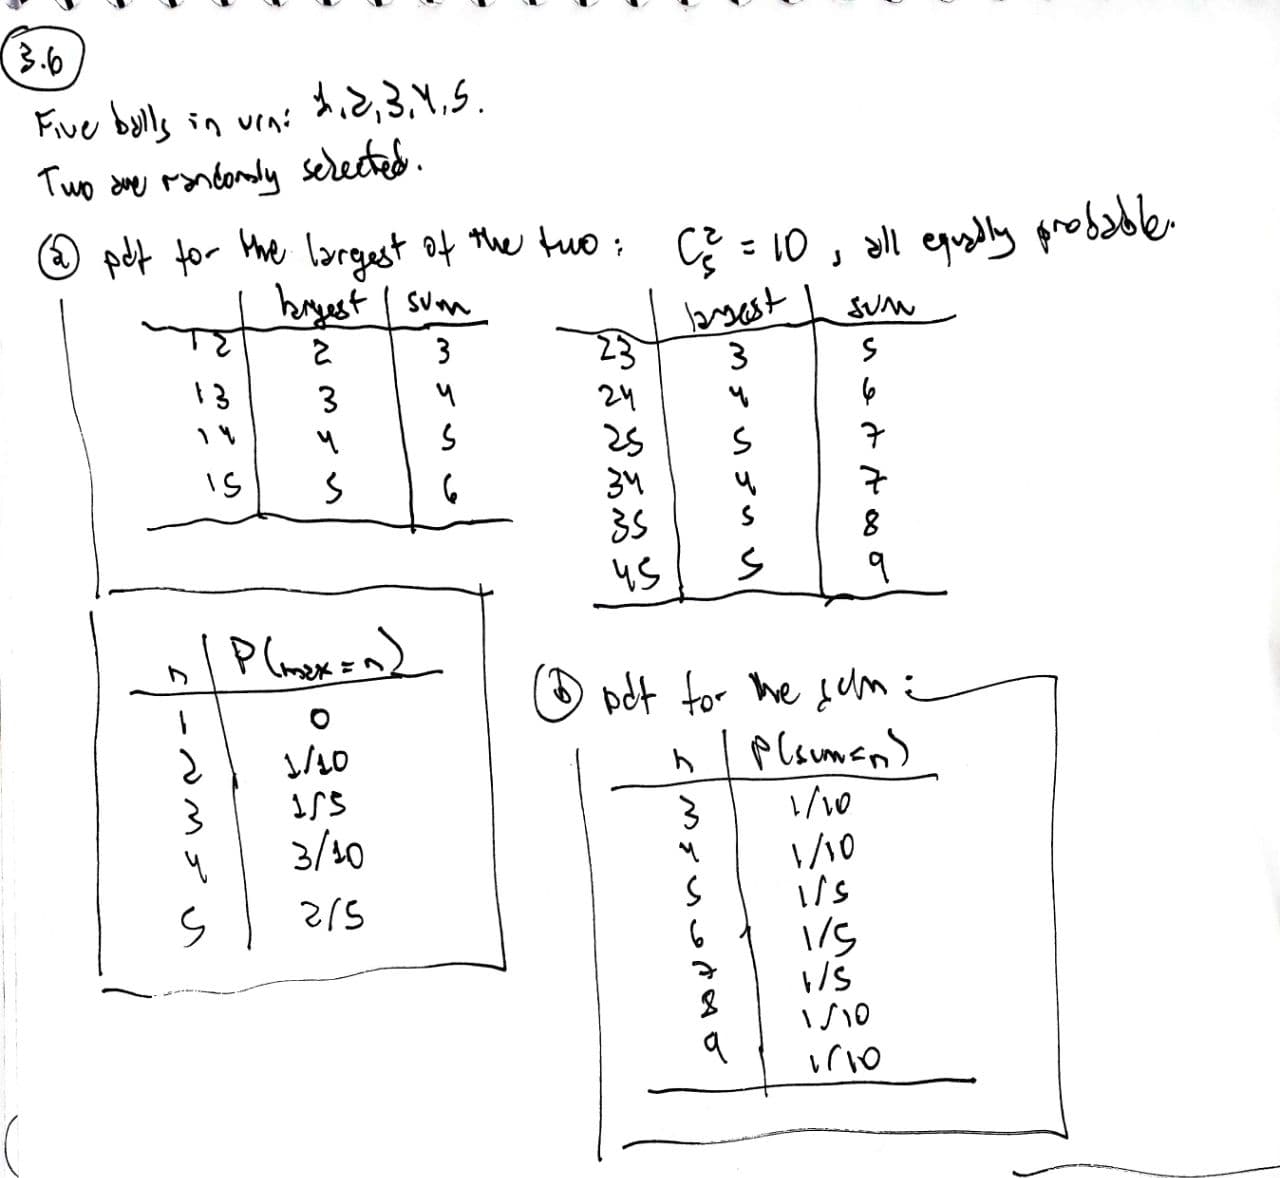 3.6
Five balls in urn: 1,2,3,4,5.
Two are randomly selected.
(a) pdf for the largest of the two: C₅² = 10, all equally probable.
largest | sum
12 2 3
13 3 4
14 4 5
15 5 6
largest | sum
23 3 5
24 4 6
25 5 7
34 4 7
35 5 8
45 5 9
n | P(max=n)
1 0
2 1/10
3 1/5
4 3/10
5 2/5
(b) pdf for the sum:
n | P(sum=n)
3 1/10
4 1/10
5 1/5
6 1/5
7 1/5
8 1/10
9 1/10